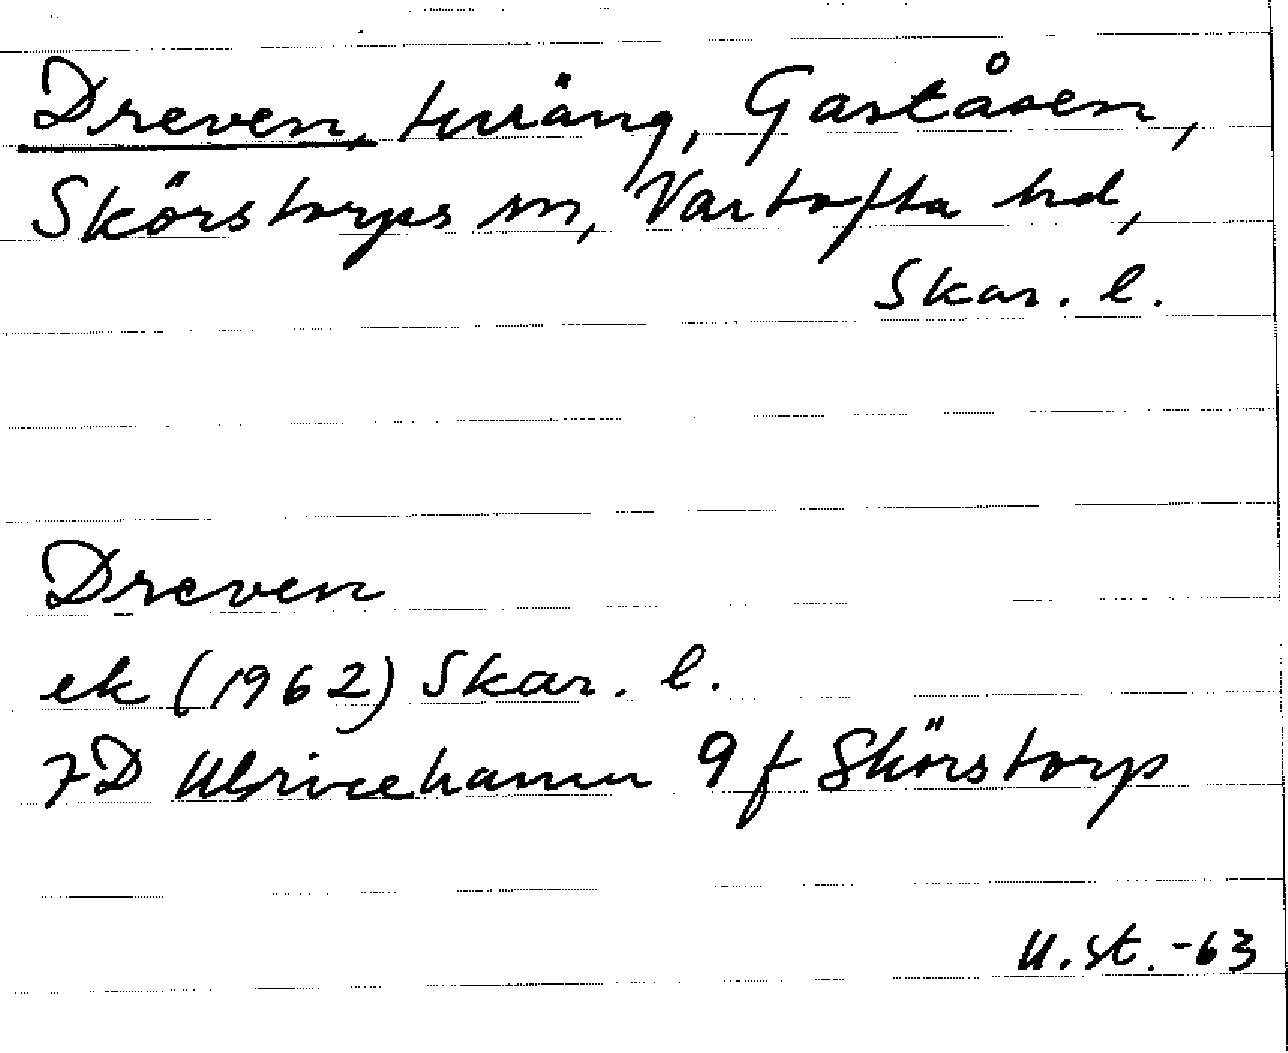 Dreven, turäng, Gaståsen,
Skörstorps sn, Vartofta hd,
Skar. l.
Dreven
ek (1962) Skar. l.
7D Ulricehamn 9 f Skörstorp
U.st. -63